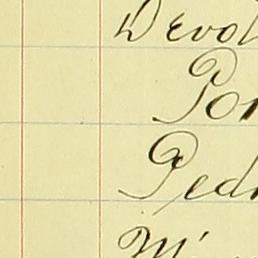 Devol
Por
Pedr
Mi